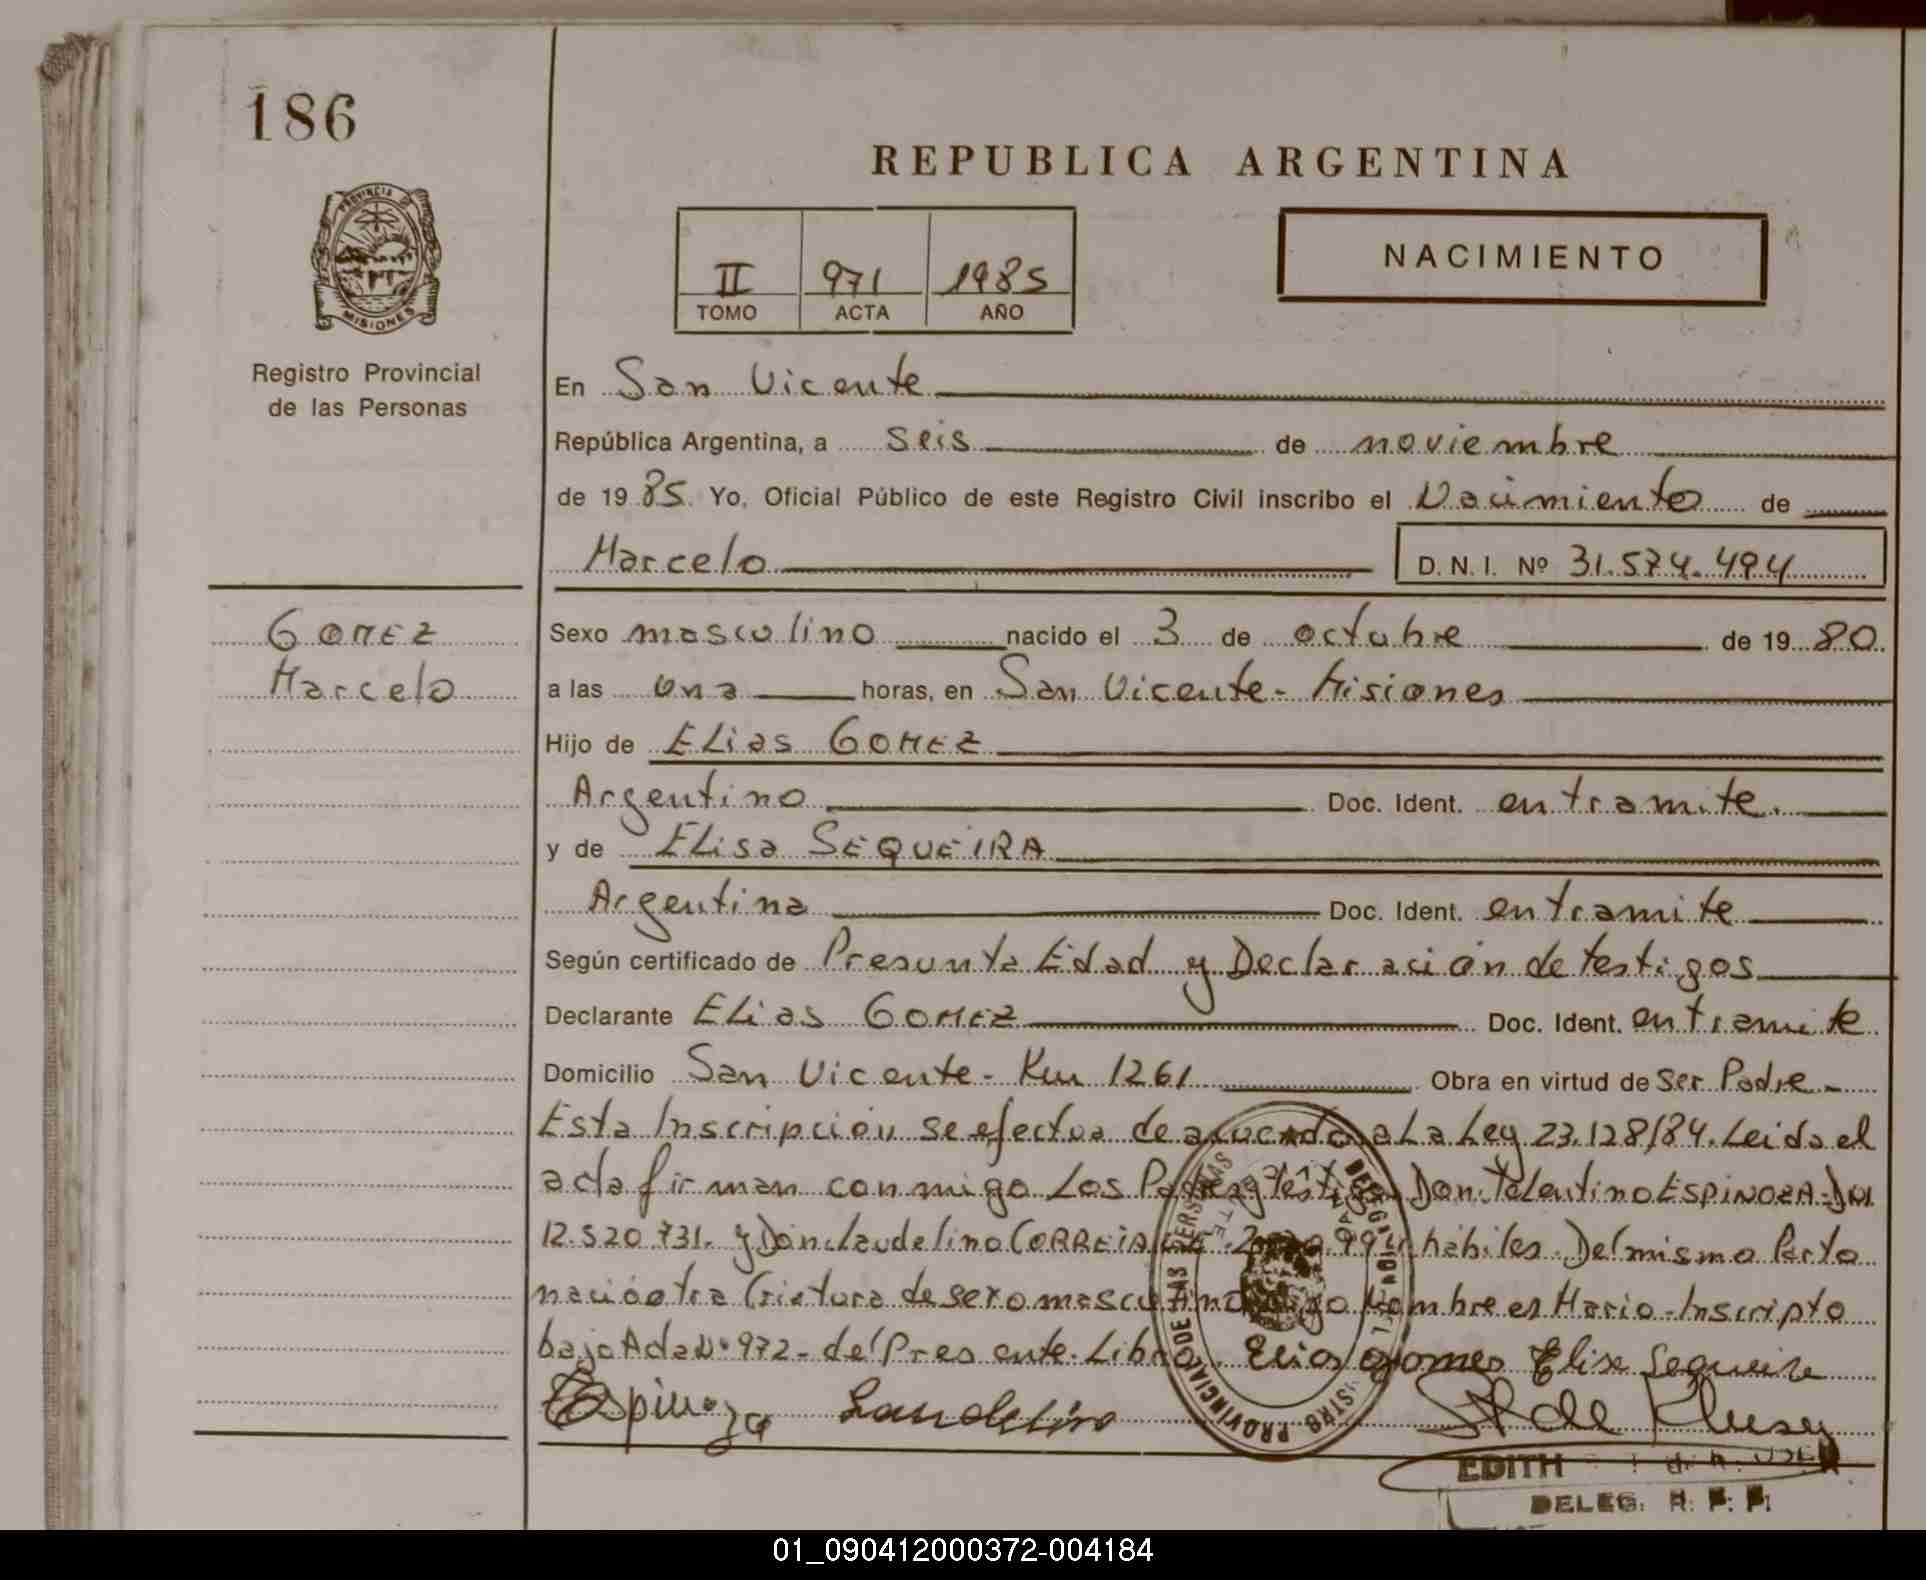 186
REPUBLICA ARGENTINA
PROVINCIA
MISIONES
Registro Provincial
de las Personas
II 971 1985
TOMO ACTA AÑO
NACIMIENTO
En San Vicente
República Argentina, a seis de noviembre
de 1985. Yo, Oficial Público de este Registro Civil inscribo el Nacimiento de
Marcelo D. N. I. Nº 31.574.494
GOMEZ
Marcelo
Sexo masculino nacido el 3 de octubre de 1980.
a las una horas, en San Vicente - Misiones
Hijo de ELias GOMEZ
Argentino Doc. Ident. en tramite.
y de ELisa SEQUEIRA
Argentina Doc. Ident. en tramite
Según certificado de Presunta Edad y Declaración de testigos
Declarante ELias GOMEZ Doc. Ident. en tramite
Domicilio San Vicente - Km 1261 Obra en virtud de ser Padre -
Esta Inscripción se efectua de acuerdo a La Ley 23.128/84. Leida el
acta firman conmigo Los Don ESPINOZA - DNI
12.520.731. y Don CORREIA habiles. Del mismo Parto
nació otra Criatura de sexo masculino cuyo Nombre es Mario - Inscripto
bajo Acta Nº 972 - del Presente Libro. Elias Gomes Elisa Sequeira
Espinoza
EDITH
DELEG. R. P. P.
REGISTRO PROVINCIAL DE LAS PERSONAS
01_090412000372-004184